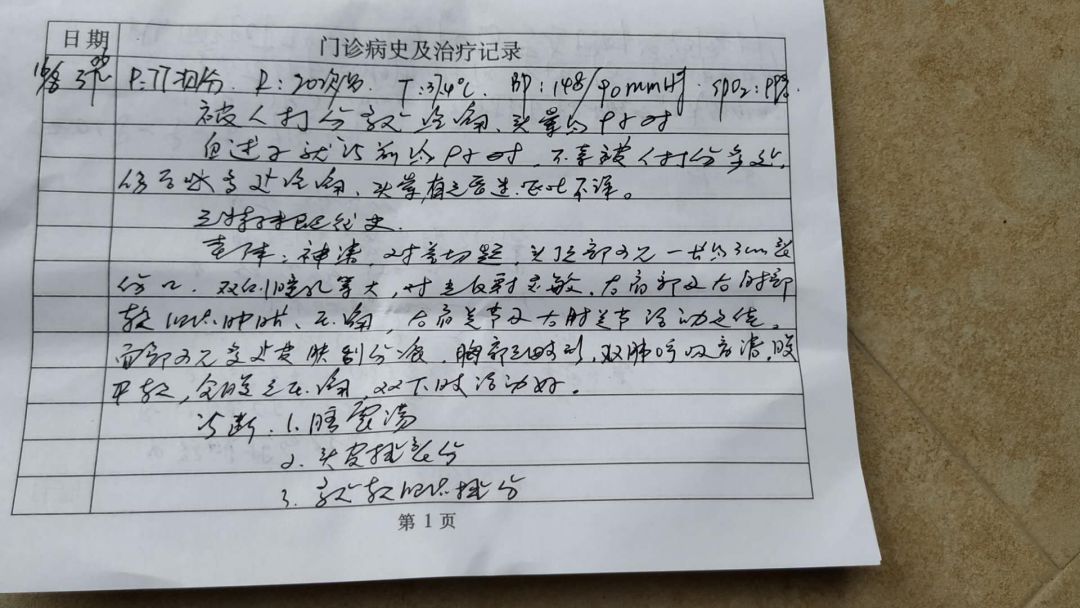 日期
门诊病史及治疗记录
P:77次/分. R:20次/分. T:37.4℃. BP:148/90mmHg. SPO2:99%.
被人打伤多处疼痛、头晕约1小时
患者于就诊前约1小时,不幸被人打伤多处,
伤后多处疼痛、头晕,有无昏迷、呕吐不详。
无特殊既往史.
查体:神清,对答切题,头顶部可见一长约3cm裂
伤口.双侧瞳孔等大,对光反射灵敏.右肩部及右肘部
软组织肿胀、压痛,右肩关节及右肘关节活动欠佳。
面部可见多处皮肤划伤痕,胸部无畸形,双肺呼吸音清,腹
平软,全腹无压痛,双下肢活动好。
诊断.1.脑震荡
2.头皮挫裂伤
3.多处软组织挫伤
第1页